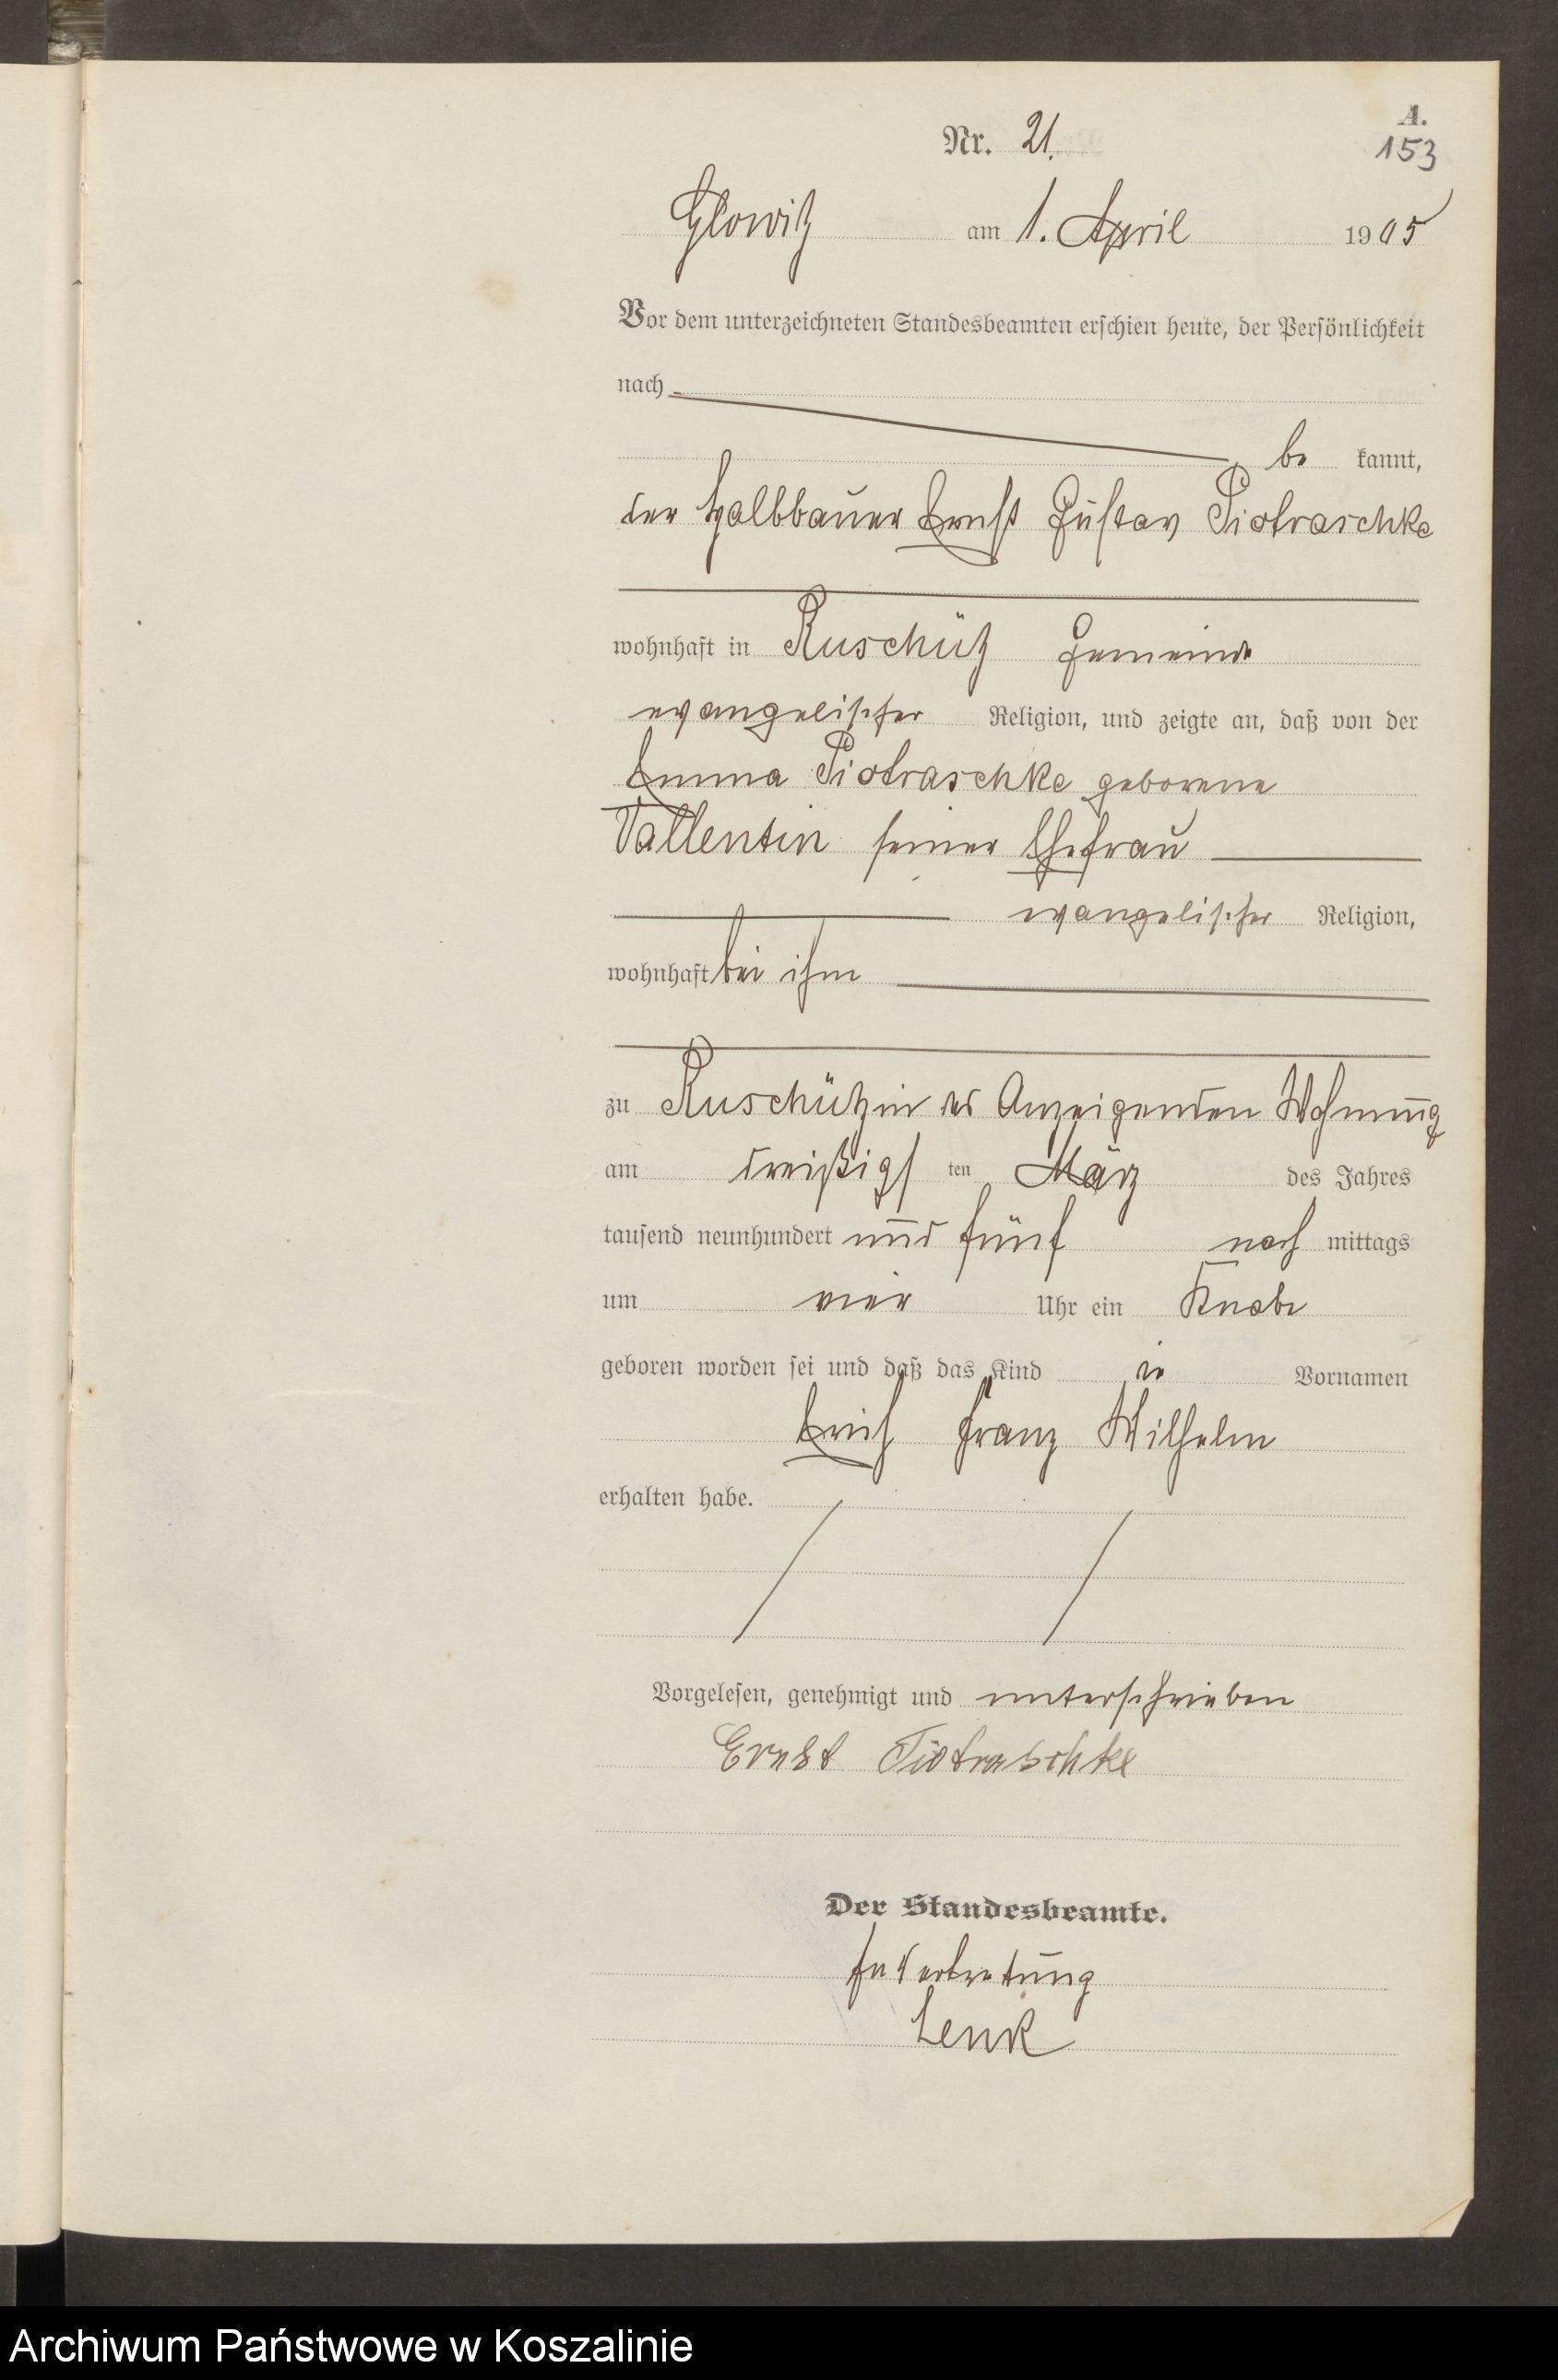 A.
Nr. 21.
153
Glowitz am 1. April 1905
Vor dem unterzeichneten Standesbeamten erschien heute, der Persönlichkeit
nach
be kannt,
der Halbbauer Ernst Gustav Piotraschke
wohnhaft in Ruschütz Gemeinde
evangelischer Religion, und zeigte an, daß von der
Emma Piotraschke geborene
Vallentin seiner Ehefrau
evangelischer Religion,
wohnhaft bei ihm
zu Ruschütz in des Anzeigenden Wohnung
am dreißigs ten März des Jahres
tausend neunhundert und fünf nach mittags
um vier Uhr ein Knabe
geboren worden sei und daß das Kind die Vornamen
Erich Franz Wilhelm
erhalten habe.
Vorgelesen, genehmigt und unterschrieben
Ernst Piotraschke
Der Standesbeamte.
In Vertretung
Lenk
Archiwum Państwowe w Koszalinie